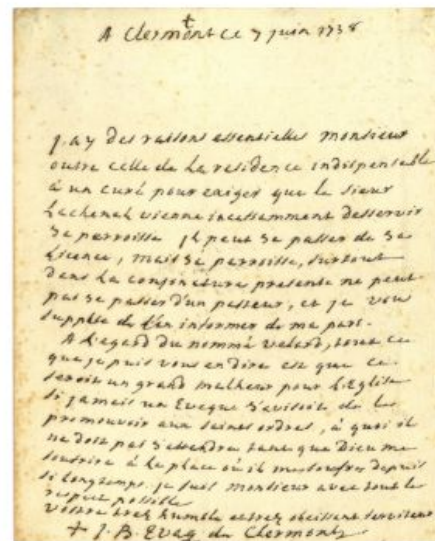 †
A Clermont ce 7 juin 1738
J'ay des raisons essentielles monsieur
outre celle de la residence indispensable
à un curé pour exiger que le sieur
Lachenal vienne incessamment desservir
sa parroisse Il peut se passer de sa
licence, mais sa parroisse, surtout
dans la conjoncture presente ne peut
pas se passer d'un pasteur, et je vous
supplie de l'en informer de ma part.
A l'egard du nommé velard, tout ce
que je puis vous en dire est que ce
seroit un grand malheur pour l'Eglise
si jamais un Eveque s'avisoit de le
promouvoir aux saints ordres, à quoi il
ne doit pas s'attendre tant que Dieu me
soufrira à la place où il me soufre depuis
si longtemps. je suis monsieur avec tout le
respect possible
Vostre trez humble et trez obeissant serviteur
+ J. B. Eveq. de Clermont